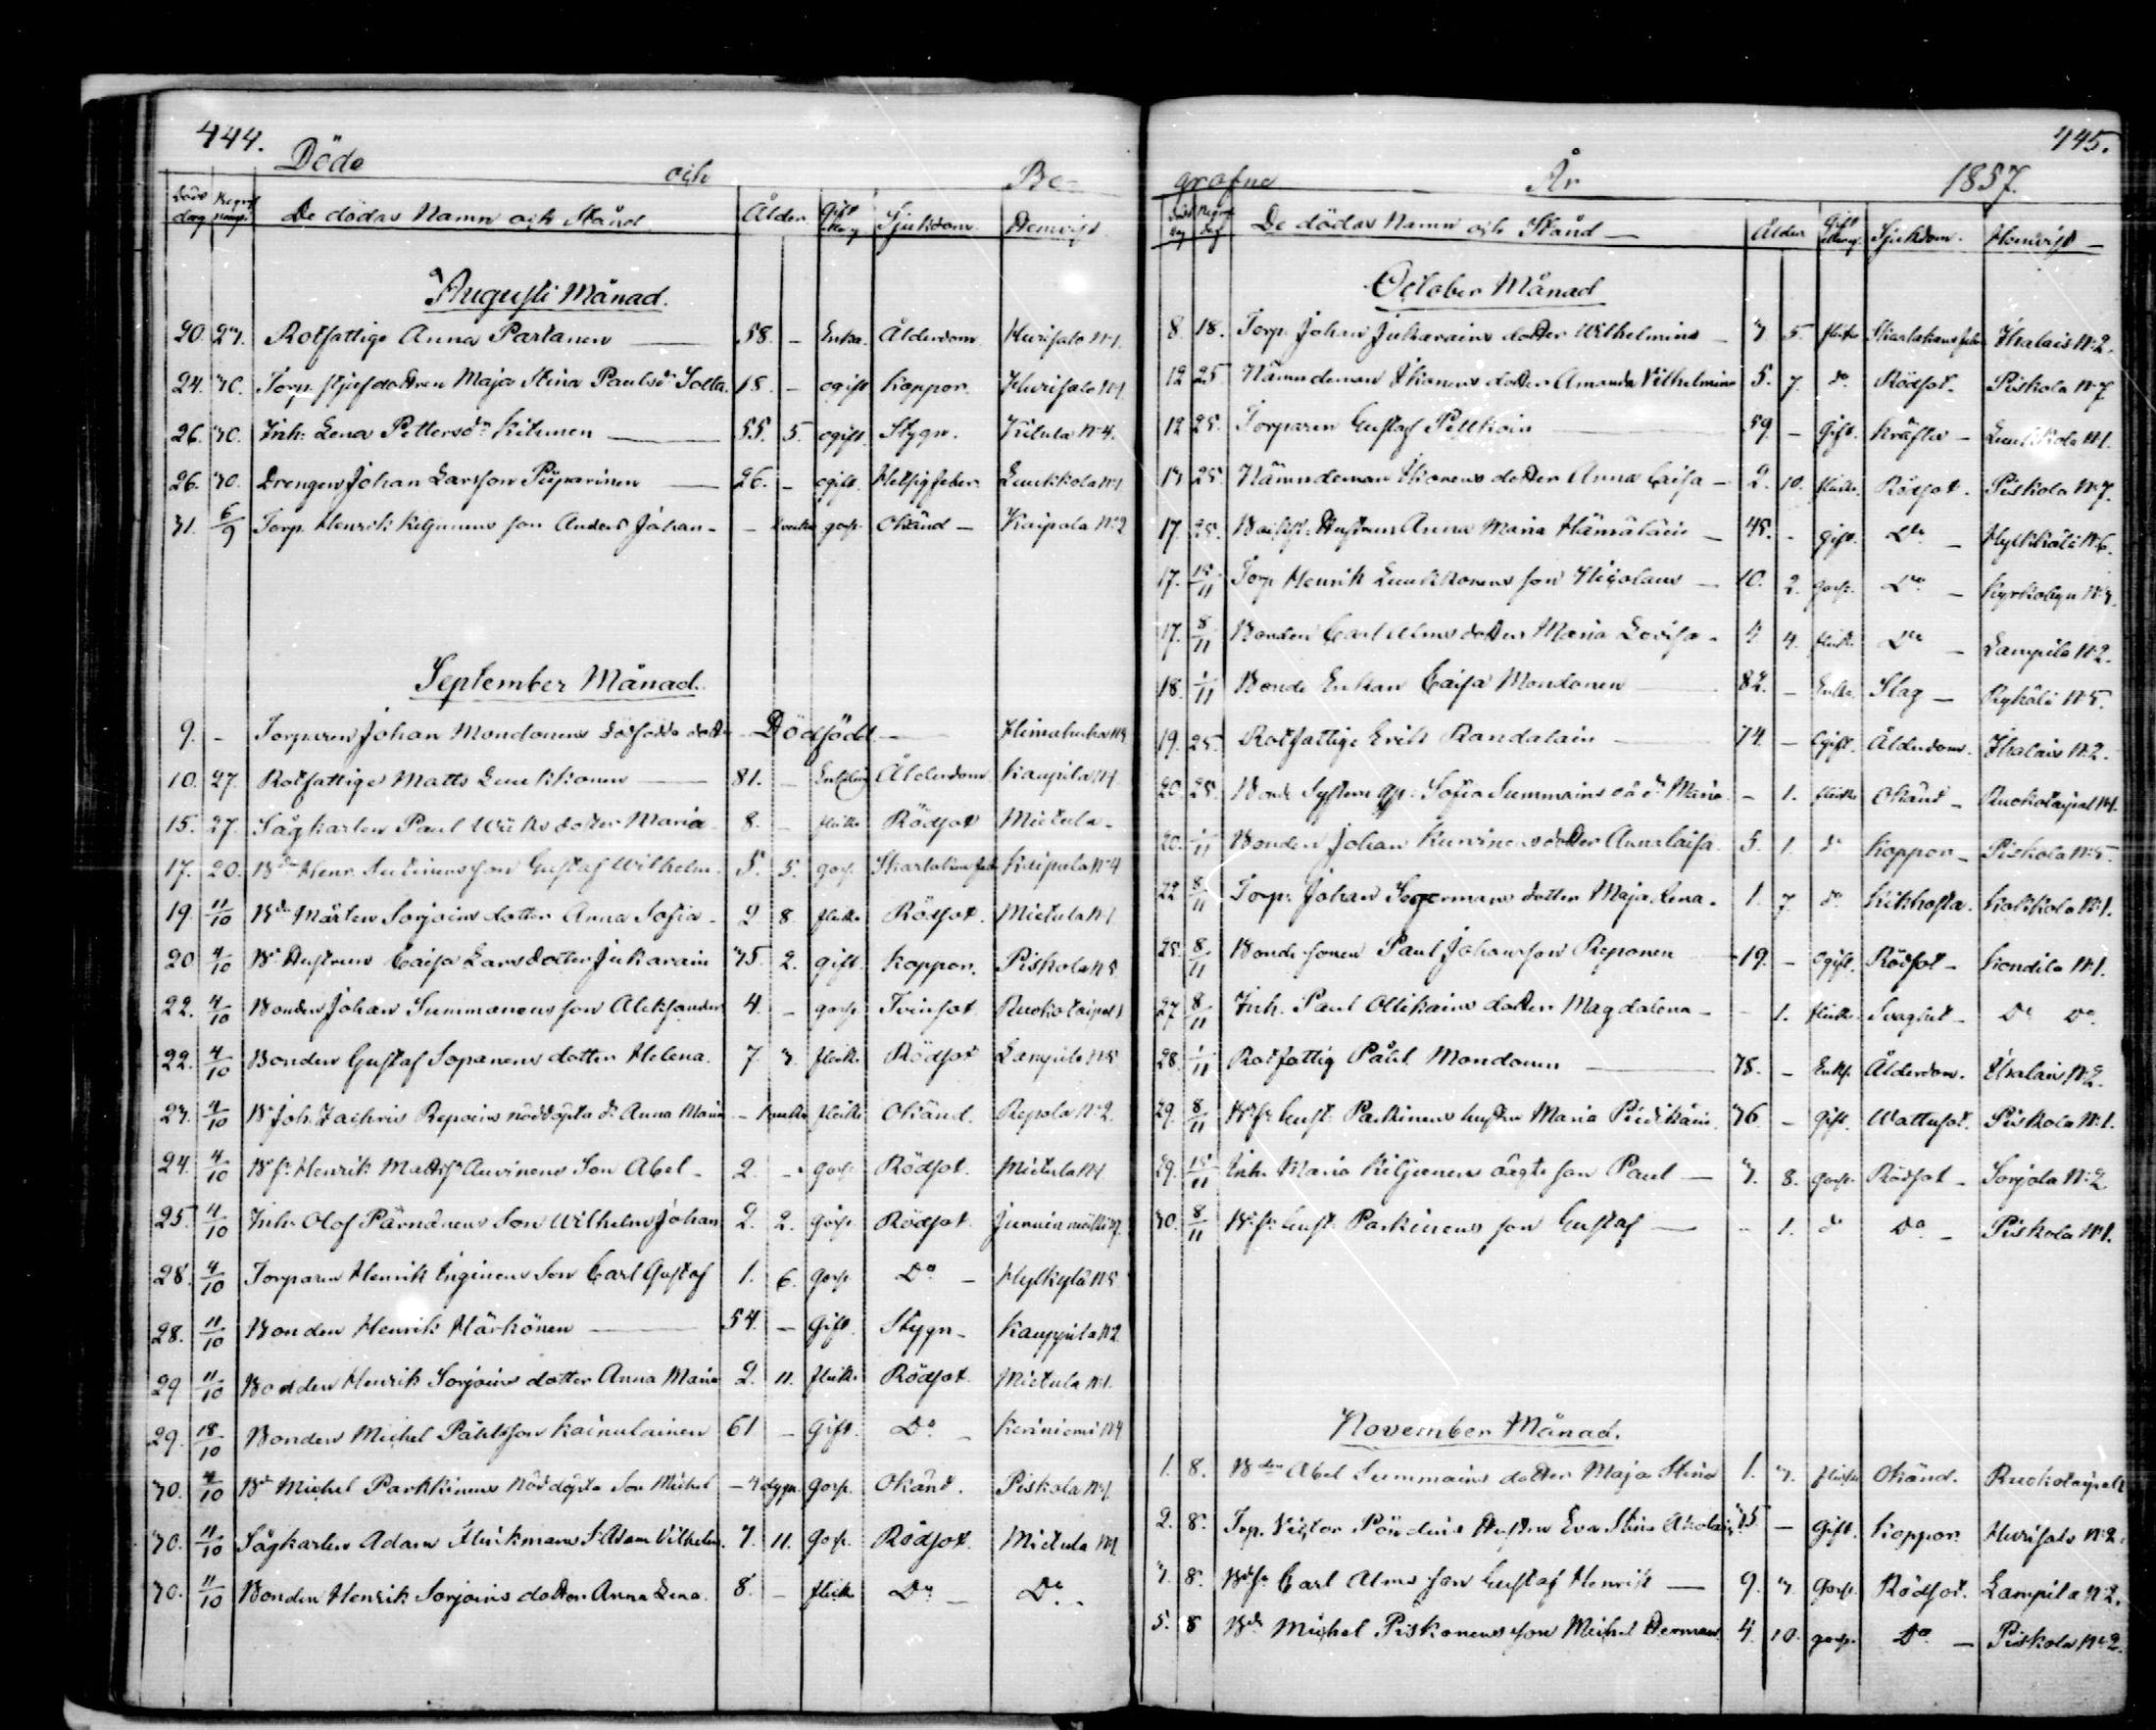 444.
Döde och Be-
Döds dag Begrafn. Dag De dödas Namn och Stånd Ålder Gift eller ej Sjukdom Hemvist
Augusti Månad.
20. 27. Rotfattige Anna Partanen 58. - Enka. Ålderdom Hurisalo N1.
24. 30. Torp. styfdottren Maja Stina Paulsdr 18. - ogift Koppor. Hurisalo N1
26. 30. Inh. Lena Pettersdr Kitunen 55. 5. ogift. Stygn. Kitula N4.
26. 30. Drengen Johan Larsson Piiparinen 26. - ogift. Hetsigfeber Luukkola N1
31. 6/9 Torp. Henrik Kiljunens son Anders Johan - - goss. Okänd - Kaipola N2
September Månad.
9. - Torparen Johan Mondonens dödfödda dotter Dödfödd.
10. 27. Rotfattige Matts Luukkonen 81. - Enkling Ålderdom Kaupila N1
15. 27. Sågkarlen Paul Wiiks dotter Maria 8. - flicka Rödsot Mietula -
17. 20. Bdn Henr. son Gustaf Wilhelm. 5. 5. goss. Skarlakansfeb. Kaipola N4
19. 11/10 Bdn Mårten Sorjoins dotter Anna Sofia - 2 8. flicka Rödsot. Mietula N1
20 4/10 Bd Hustrun Caisa Larsdotter Jukarain 35. 2. gift. Koppor. Piskola N8
22. 4/10 Bonden Johan Summanens son Aleksander 4. - goss. Tvinsot. Ruokolaipal 1
22. 4/10 Bonden Gustaf Sopanens dotter Helena. 7. 3. flicka Rödsot Lampila N8
23. 4/10 Bd Joh. Zachris Repoins nöddöpta dr Anna Maria - flicka Okänd. Repola N2.
24. 4/10 Bd sn Henrik Mattss Auvinens Son Abel - 2. - goss. Rödsot. Mietula N1
25. 4/10 Inh. Olof Pärnänens Son Wilhelm Johan 2. 2. goss. Rödsot.
28. 4/10 Torparen Henrik Inginens Son Carl Gustaf 1. 6. goss. Do - Hylkylä N8
28. 11/10 Bonden Henrik Härkönen 54. - Gift. Stygn - Kauppila N2
29 11/10 Bonden Henrik Sorjoins dotter Anna Maria 2. 11. flicka Rödsot. Mietula N1.
29. 18/10 Bonden Michel Påhlsson Kainulainen 61 - Gift. Do - Keriniemi N4
30. 4/10 Bd Michel Parkkinens Nöddöpta Son Michel - 4 dygn. goss. Okänd. Piskola N1.
30. 11/10 Sågkarlen Adam Flinkmans S Adam Vilhelm. 7. 11. Goss. Rödsot. Mietula N1.
30. 11/10 Bonden Henrik Sorjoins dotter Anna Lena. 8. - flicka Do - Do -
445.
grafne År 1857.
Döds dag Begr. dag De dödas Namn och Stånd - Ålder Gift eller ej Sjukdom. Hemvist -
October Månad
8. 18. Torp. Johan Jukarains dotter Wilhelmina - 3. 5. flicka Skarlakansfeber Ihalais N2.
12 25 Nämndeman Ikonens dotter Amanda Vilhelmina 5. 7. do Rödsot. Piskola N7
12 25. Torparen Gustaf Pellkoin 59. - Gift. Kräfta - Luukkola N1.
13 25. Nämndeman Ikonens dotter Anna Caisa - 2. 10. flicka. Rödsot. Piskola N7.
17. 25. Hustrun Anna Maria Hämäläin - 45. - gift. Do - Hylkkälä N6.
17. 15/11 Torp Henrik Luukkonens son Nicolaus - 10. 2. goss. Do - Kyrkobyn N3.
17. 8/11 Bonden Carl Alms dotter Maria Lovisa - 4. 4. flicka Do - Lampila N2.
18. 1/11 Bonde Enkan Caisa Mondonen 82. - Enka. Slag - Rykälä N5.
19. 25. Rotfattige Erik Randalain 74. - Gift. Ålderdom. Ihalais N2.
20. 25. Bonde Systern Sofia Summains oä dr Maria - 1. flicka Okänd - Ruokolaipal N1.
20. 1/11 Bonden Johan Kurvinens dotter Anna Caisa. 5. 1. do Koppor - Piskola N5.
22 8/11 Torp. Johan Sogermans dotter Maja Lena. 1. 7. do Kikhosta. Kolikola N1.
25. 8/11 Bonde sonen Paul Johansson Reponen 19. - Ogift. Rödsot - Kondila N1.
27 8/11 Inh. Paul Ollikains dotter Magdalena - - 1. flicka Svaghet - Do Do
28. 1/11 Rotfattig Påhl Mondonen 78. - Enkl. Ålderdom. Ihalais N2.
29. 8/11 Bd sn Gust. Parkinens hustru Maria Piidikäin. 36. - Gift. Wattusot. Piskola N1.
29. 15/11 Inh. Maria Kiljunens oägta son Paul - 3. 8. Goss. Rödsot - Sorjola N2
30. 8/11 Bd sn Gust. Parkinens son Gustaf - - 1. do Do - Piskola N1.
November Månad.
1. 8. Bdn Abel Summains dotter Maja Stina 1. 3. flicka Okänd. Ruokolaipal 2
2. 8. Trp. Victor Pöndins Hustru Eva Stina 35 - Gift. Koppor. Hurisalo N2.
3. 8. Bdsn Carl Alms son Gustaf Henrik - 9. 3. Goss. Rödsot. Lampila N2.
5. 8 Bdn Michel Piskonens son Michel Herman 4. 10. goss. Do - Piskola N2.